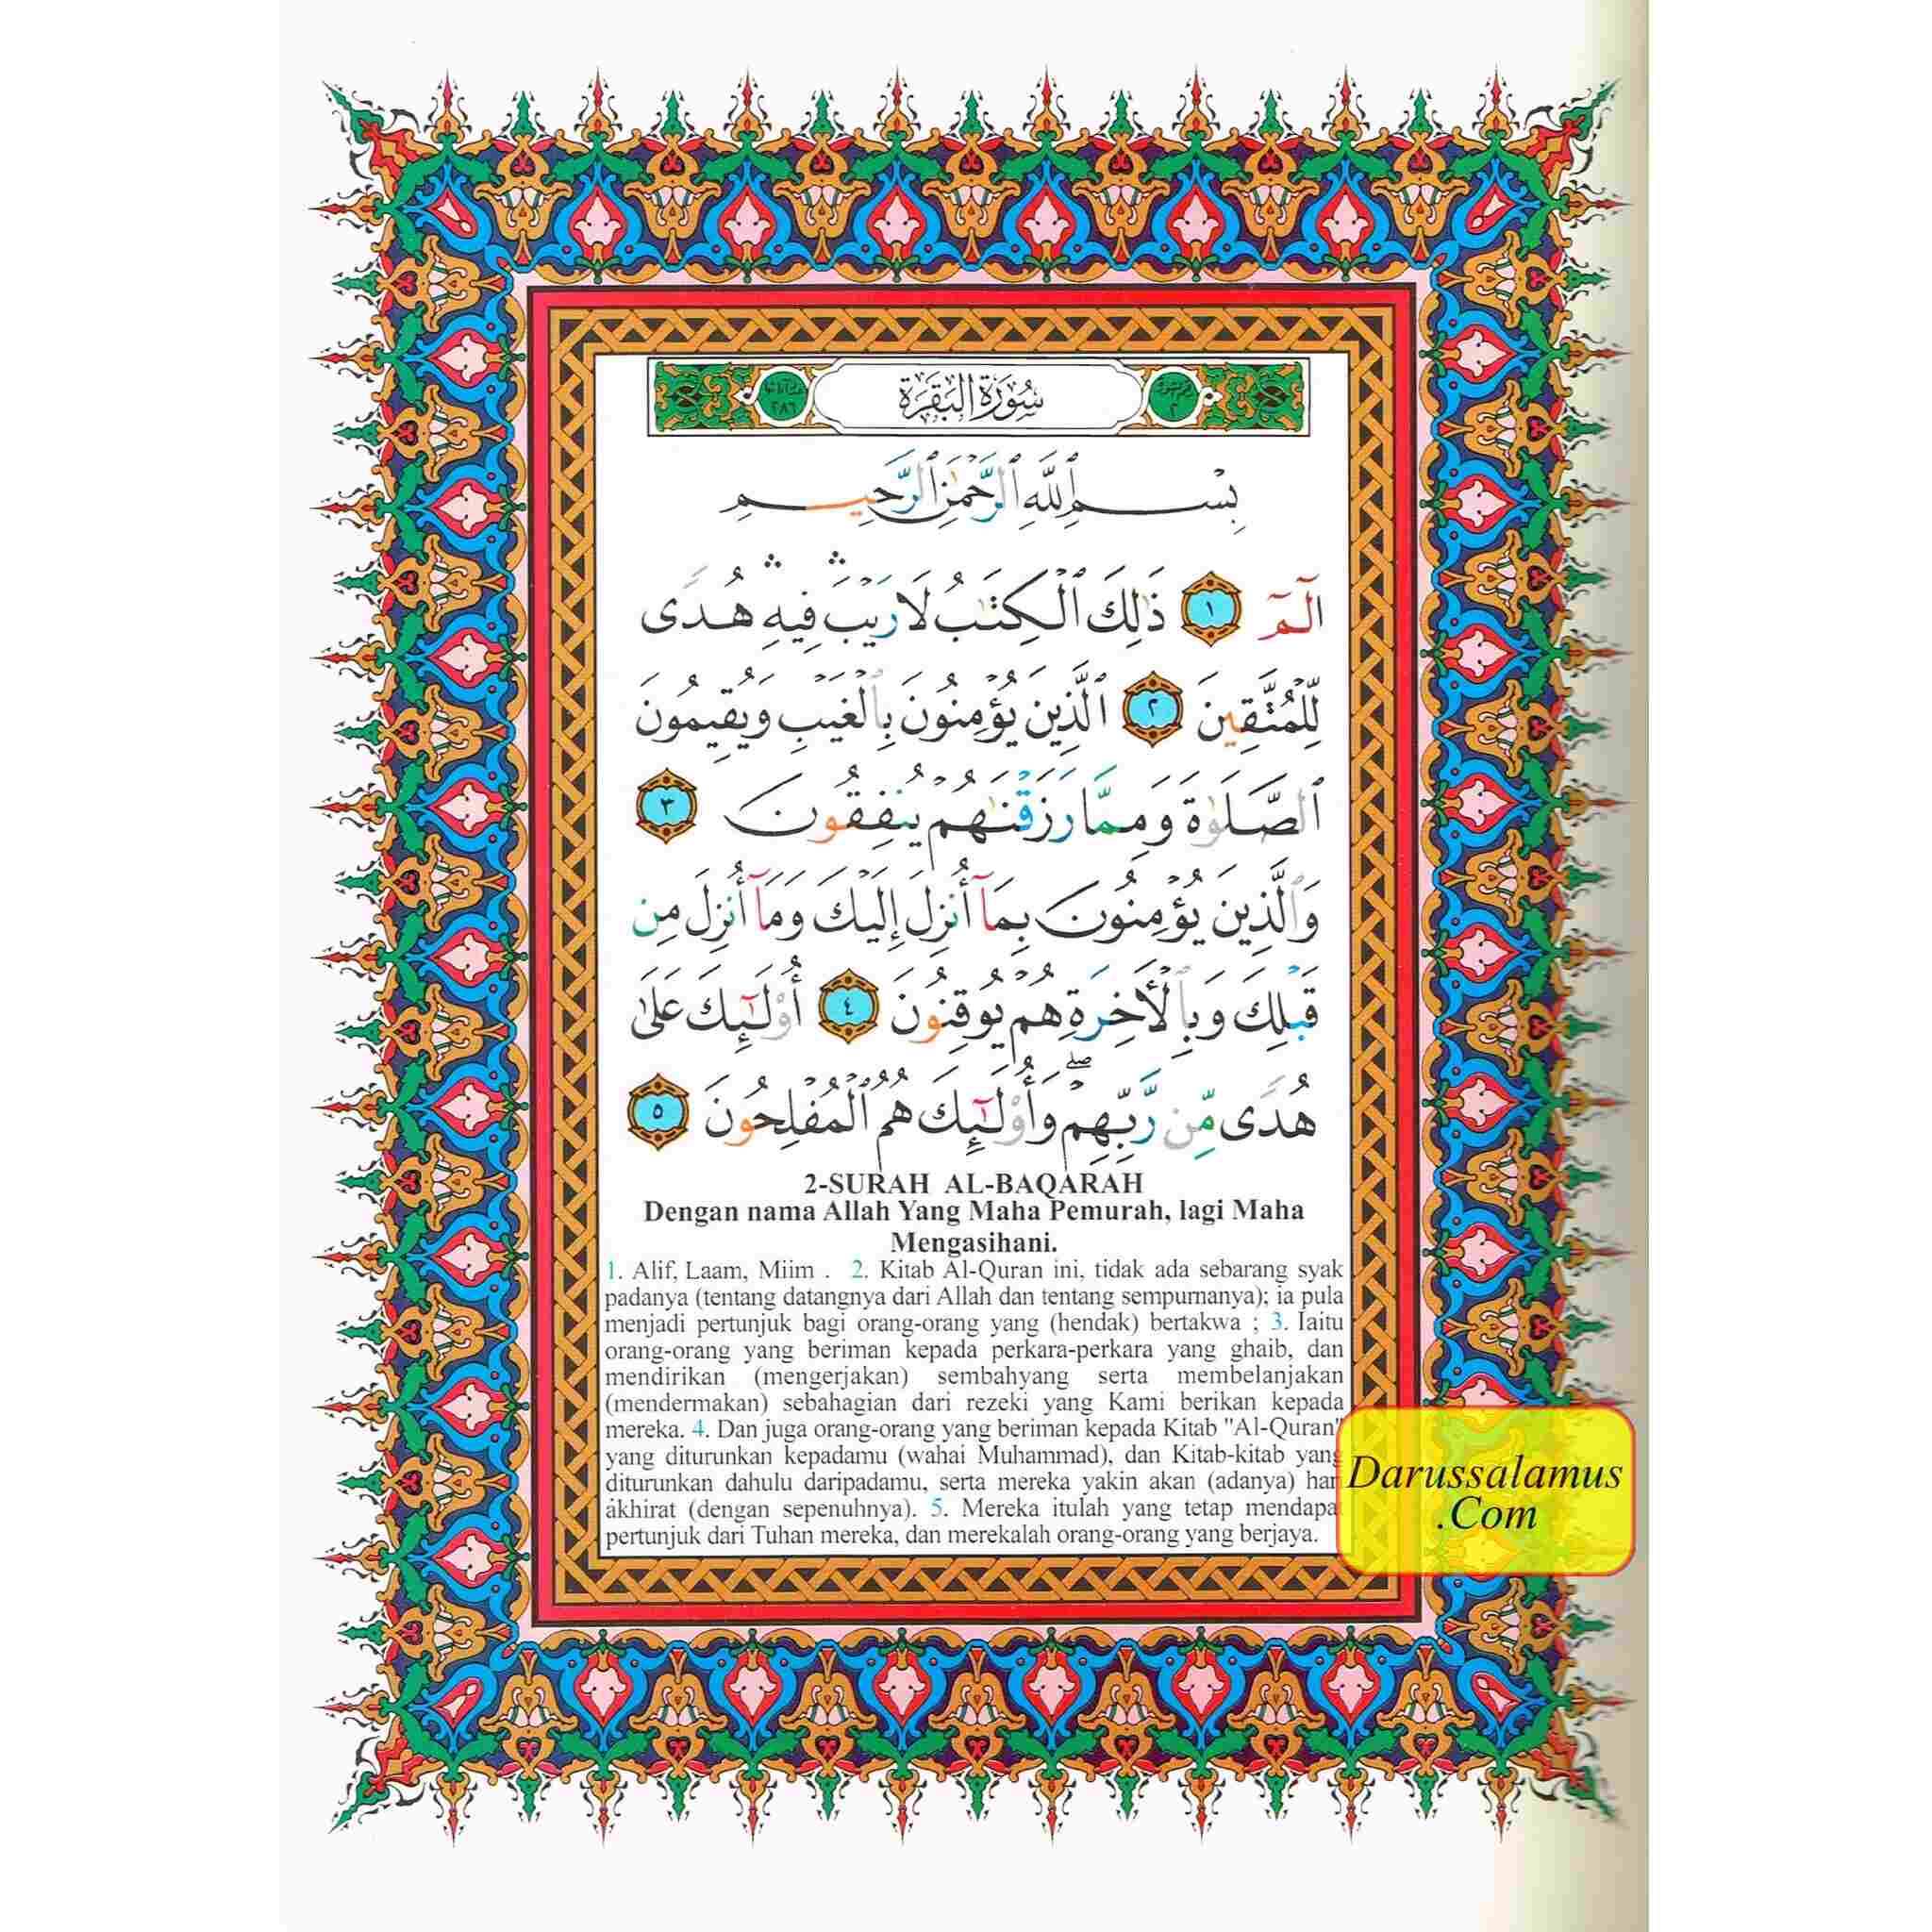 سُورَةُ البَقَرَة
٢
٢٨٦
بِسْمِ ٱللَّهِ ٱلرَّحْمَٰنِ ٱلرَّحِيمِ
الٓمٓ ١ ذَٰلِكَ ٱلْكِتَٰبُ لَا رَيْبَ ۛ فِيهِ ۛ هُدًى
لِّلْمُتَّقِينَ ٢ ٱلَّذِينَ يُؤْمِنُونَ بِٱلْغَيْبِ وَيُقِيمُونَ
ٱلصَّلَوٰةَ وَمِمَّا رَزَقْنَٰهُمْ يُنفِقُونَ ٣
وَٱلَّذِينَ يُؤْمِنُونَ بِمَآ أُنزِلَ إِلَيْكَ وَمَآ أُنزِلَ مِن
قَبْلِكَ وَبِٱلْأَخِرَةِ هُمْ يُوقِنُونَ ٤ أُو۟لَٰٓئِكَ عَلَىٰ
هُدًى مِّن رَّبِّهِمْ ۖ وَأُو۟لَٰٓئِكَ هُمُ ٱلْمُفْلِحُونَ ٥
2-SURAH AL-BAQARAH
Dengan nama Allah Yang Maha Pemurah, lagi Maha
Mengasihani.
1. Alif, Laam, Miim . 2. Kitab Al-Quran ini, tidak ada sebarang syak
padanya (tentang datangnya dari Allah dan tentang sempurnanya); ia pula
menjadi pertunjuk bagi orang-orang yang (hendak) bertakwa ; 3. Iaitu
orang-orang yang beriman kepada perkara-perkara yang ghaib, dan
mendirikan (mengerjakan) sembahyang serta membelanjakan
(mendermakan) sebahagian dari rezeki yang Kami berikan kepada
mereka. 4. Dan juga orang-orang yang beriman kepada Kitab "Al-Quran"
yang diturunkan kepadamu (wahai Muhammad), dan Kitab-kitab yang
diturunkan dahulu daripadamu, serta mereka yakin akan (adanya) hari
akhirat (dengan sepenuhnya). 5. Mereka itulah yang tetap mendapat
pertunjuk dari Tuhan mereka, dan merekalah orang-orang yang berjaya.
Darussalamus
.Com